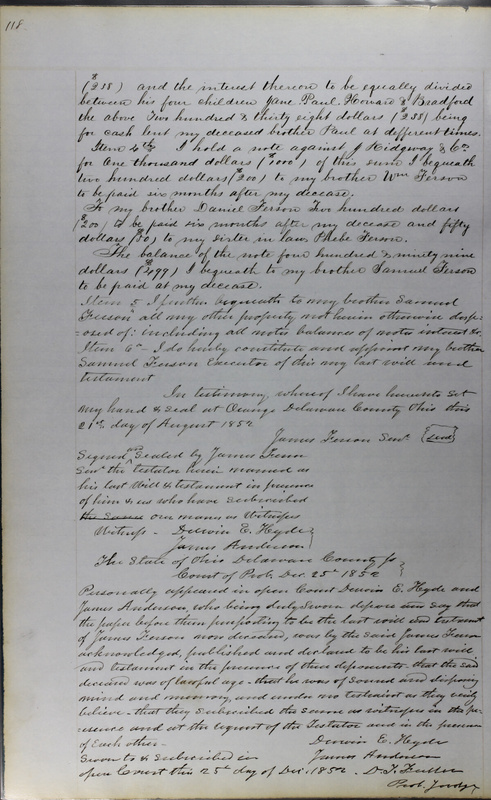 118
($238) and the interest thereon to be equally divided
between his four children Jane. Paul. Howard & Bradford
the above Two hundred & thirty eight dollars ($238) being
for cash lent my deceased brother Paul at different times.
Item 4th I hold a note against J Ridgway & Co.
for One thousand dollars ($1000) of this sum I bequeath
two hundred dollars ($200) to my brother Wm Ferson
to be paid six months after my decease.
To my brother Daniel Ferson Two hundred dollars
($200) to be paid six months after my decease and fifty
dollars ($50) to my sister in law Phebe Ferson.
The balance of the note four hundred & ninety nine
dollars ($499) I bequeath to my brother Samuel Ferson
to be paid at my decease.
Item 5 I further bequeath to my brother Samuel
Ferson all my other property not herein otherwise disp-
-osed of: including all notes balances of notes interest &c.
Item 6th I do hereby constitute and appoint my brother
Samuel Ferson Executor of this my last will and
testament
In testimony whereof I have hereunto set
my hand & seal at Orange Delaware County Ohio this
21st day of August 1852
James Ferson Senr. (seal)
Signed and Sealed by James Ferson
Senr the testator herein named as
his last Will & testament in presence
of him & us who have subscribed
the same our names as Witnesses
Witness - Derwin E. Hyde
James Anderson
The State of Ohio Delaware County ss
Court of Prob. Dec. 25th 1852
Personally appeared in open Court Derwin E. Hyde and
James Anderson, who being duly sworn depose and say that
the paper before them purporting to be the last will and testament
of James Ferson now deceased, was by the said James Ferson
acknowledged, published and declared to be his last will
and testament in the presence of these deponents - that the said
deceased was of lawful age - that he was of sound and disposing
mind and memory, and under no restraint as they verily
believe - that they subscribed the same as witnesses in the pr-
esence and at the request of the Testator and in the presence
of Each other - Derwin E. Hyde
Sworn to & Subscribed in James Anderson
open Court this 25th day of Dec. 1852. D. T. Fuller
Prob. Judge